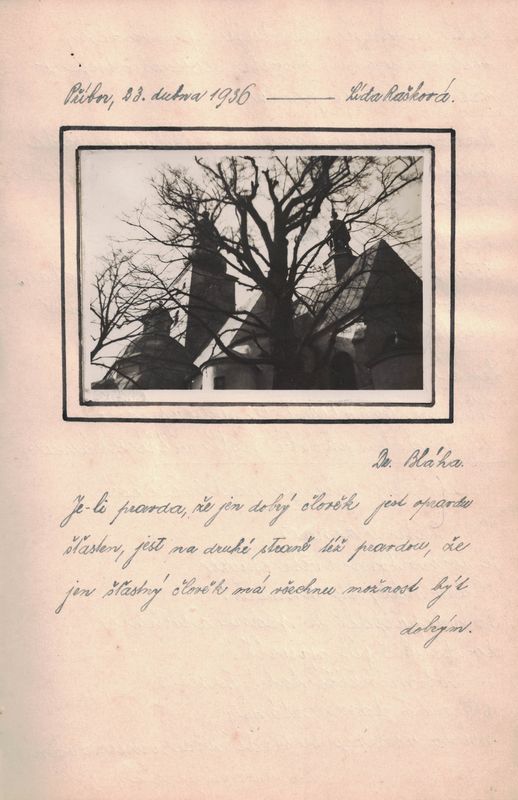 Příbor, 23. dubna 1936 ——— Lída Rašková.
Dr. Bláha.
Je-li pravda, že jen dobrý člověk jest opravdu
šťasten, jest na druhé straně též pravdou, že
jen šťastný člověk má všechnu možnost být
dobrým.